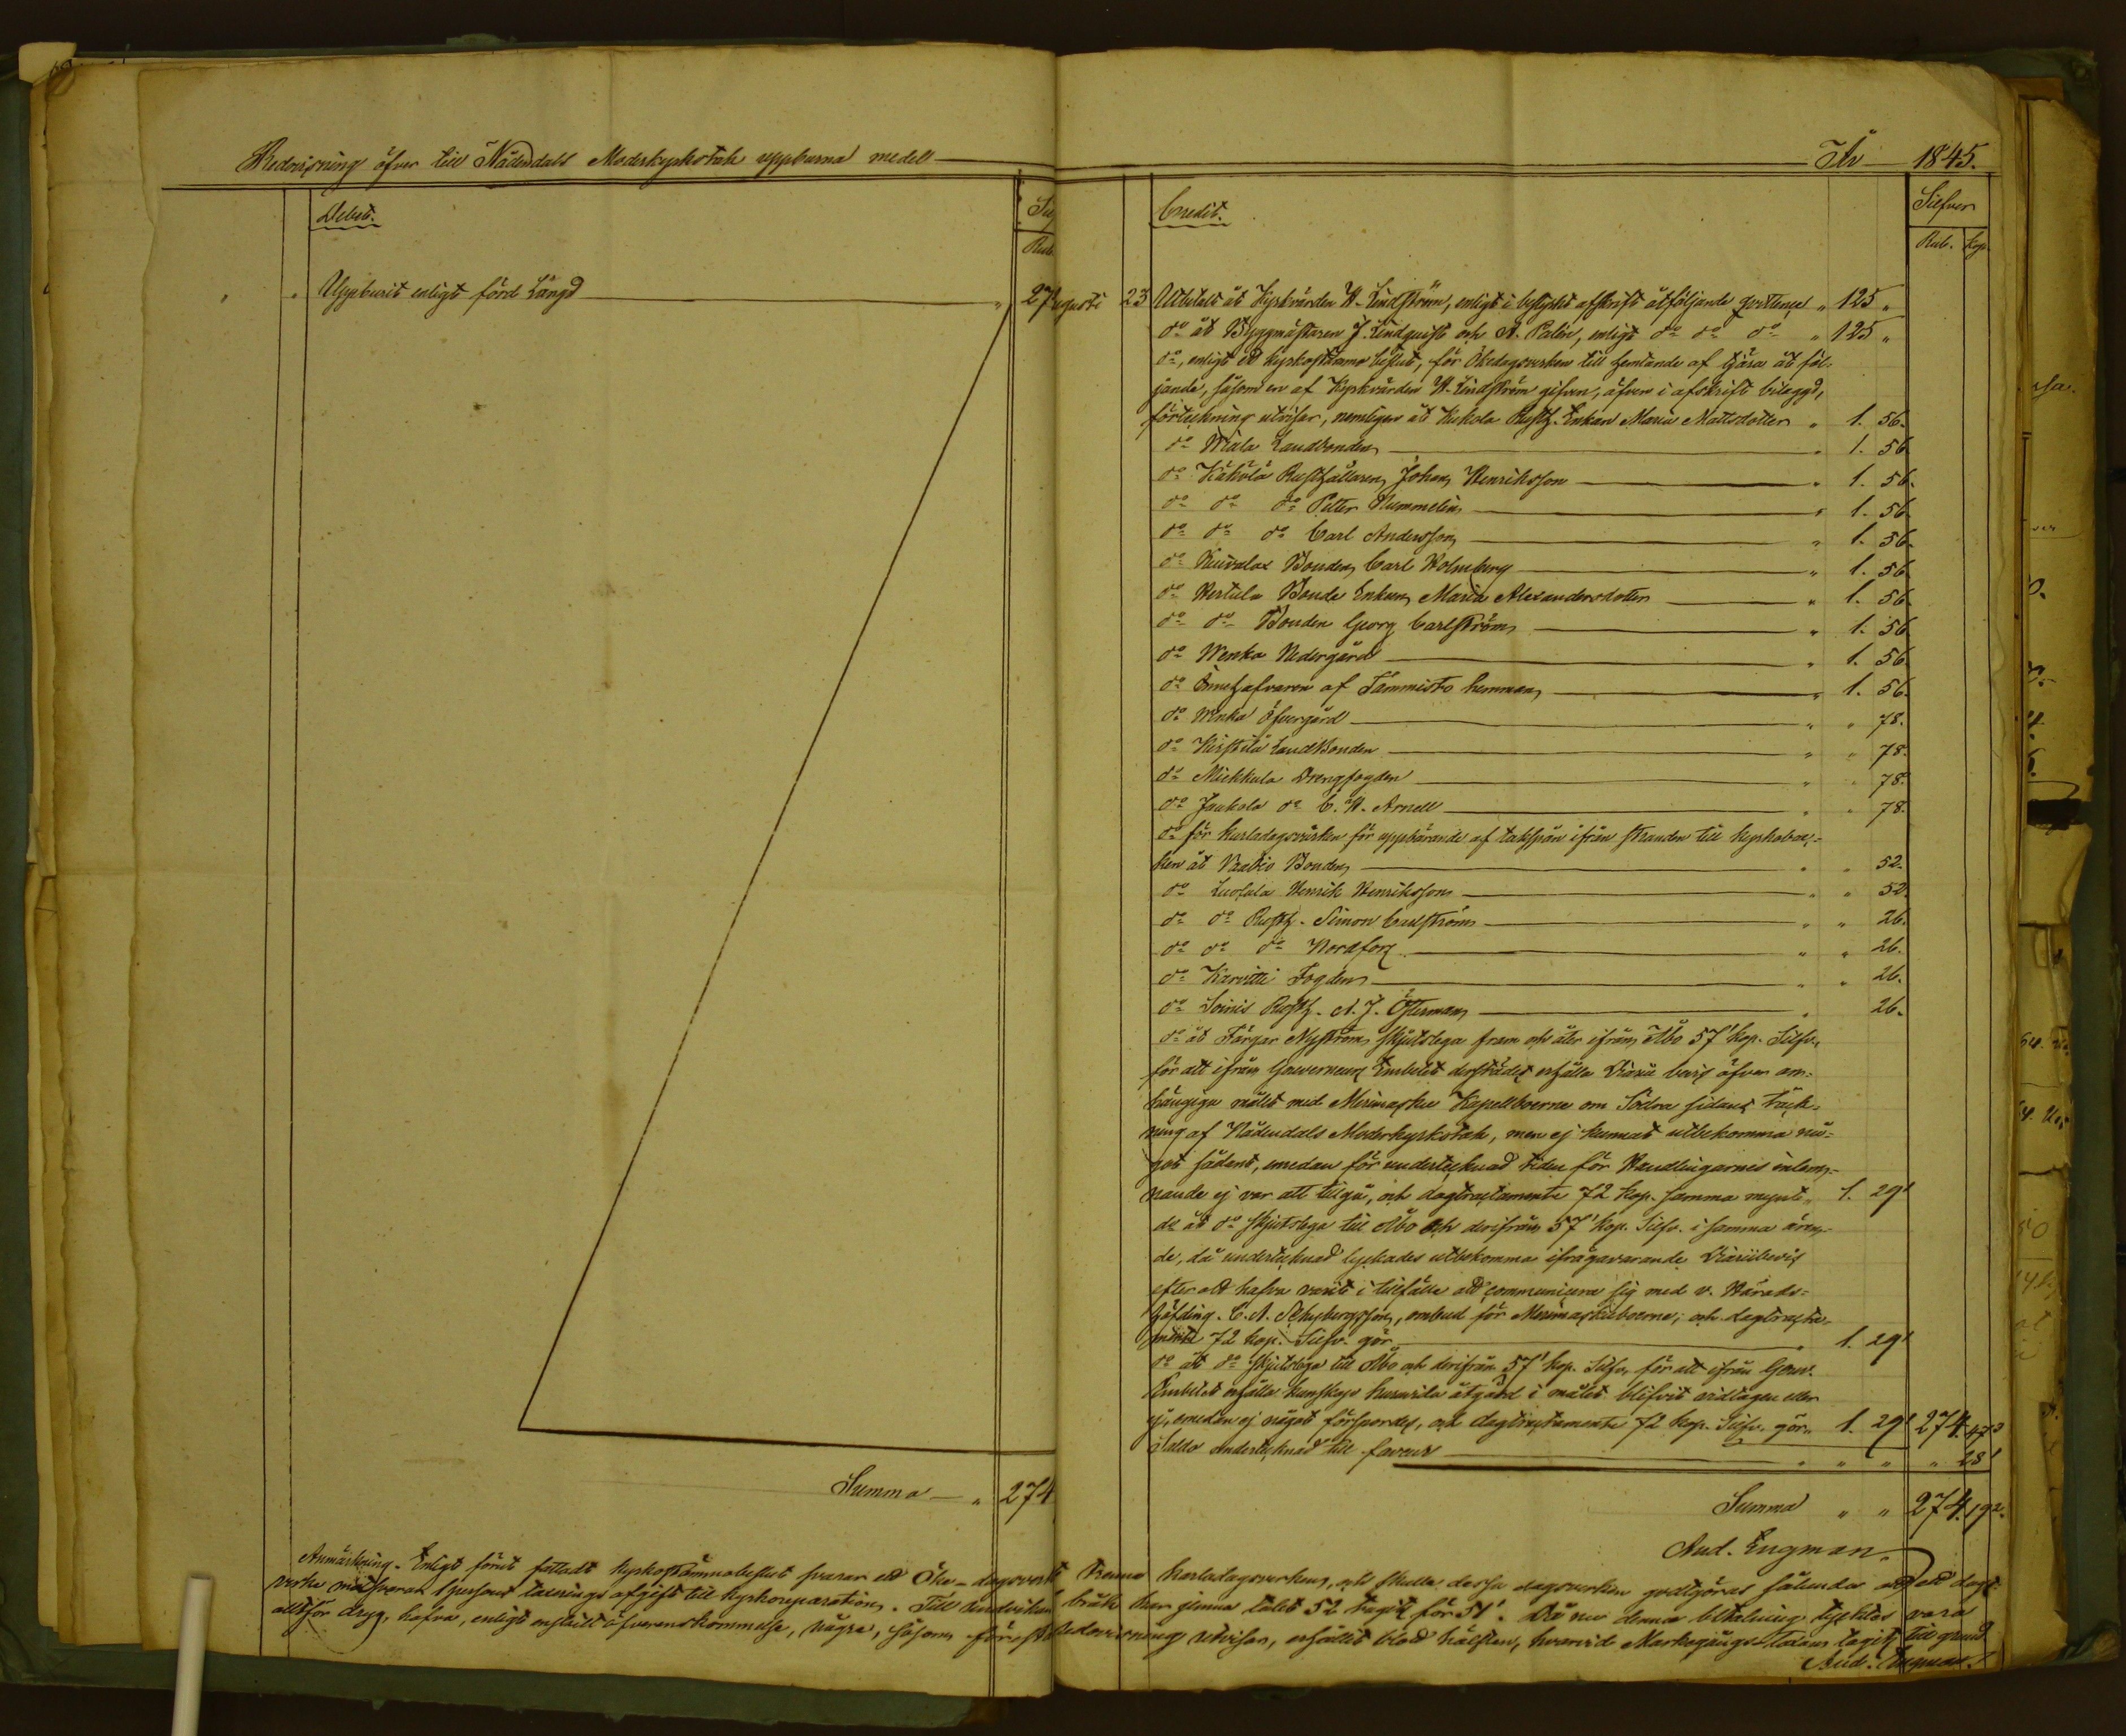 Redovisning öfver till Nådendals Moderkyrkotak uppburna medel
Debet.
Rub.
Uppburit enligt förd Längd " 27
Summa " 274
År 1845.
Credit.
Silfver
Rub. Kop.
gusti 23 Utbetalt åt Kyrkvärden H. Lindström, enligt i bestyrkt afskrift åtföljande qvittence " 125 "
do åt Byggmästaren J. Lindquist och A. Palin, enligt do do do " 125 "
do, enligt ett kyrkostämmo beslut, för Ökedagsverken till hemtande af tjära åt föl-
jande, såsom en af Kyrkvärden H. Lindström gifven, äfven i afskrift bilaggd,
förteckning utvisar, nemligen åt Kukola Rusth. Enkan Maria Mattsdotter " 1. 56.
do Viala Landbonden " 1. 56
do Käkölä Rusthållaren Johan Henriksson " 1. 56.
do do do Petter Nummelin " 1. 56
do do do Carl Andersson " 1. 56.
do Kuivalax Bonden Carl Holmberg " 1. 56
do Hertula Bonde Enkan Maria Alexandersdotter " 1. 56.
do do Bonden Georg Carlström " 1. 56
do Wenka Nedergård " 1. 56.
do Innehafvaren af Tammisto hemman " 1. 56.
do Wenka Öfvergård " " 78.
do Kirstilä Landbonden " " 78.
do Mickkula Drengfogden " " 78.
do Jaukola do C. H. Arnell " " 78.
do för karladagsverken för uppbärande af takspån ifrån stranden till kyrkobac-
ken åt Raatio Bonden " " 52.
do Luolala Henrik Henriksson " " 52.
do do Rusth. Simon Carlström " " 26.
do do do Nordfors " " 26.
do Karvitti Fogden " " 26.
do Soinis Rusth. A. J. Österman " 26.
do åt Färgar Nyström skjutslega fram och åter ifrån Åbo 57' kop. Silfv.,
för att ifrån Gouverneurs Embetet derstädes erhålla Diarii bevis öfver an-
hängiga målet med Merimasku Kapellboerne om Södra sidans täck-
ning af Nådendals Moderkyrkotak, men ej kunnat utbekomma nå-
got sådant, emedan för undertecknad tiden för Handlingarnes inlem-
nande ej var att tillgå, och dagtractamente 72 kop. samma mynt " 1. 29'
do åt do skjutslega till Åbo och derifrån 57' kop. Silfv. i samma ären-
de, då undertecknad lyckades utbekomma ifrågavarande Diariibevis
efter att hafva varit i tillfälle att communicera sig med v. Härads-
höfding C. A. Schybergsson, ombud för Merimaskuboerne; och dagtracta-
mente 72 kop. Silfv. gör " 1. 29'
do åt do skjutslega till Åbo och derifrån 57' kop. Silfv. för att ifrån Gouv.
Embetet erhålla kunskap huruvida åtgärd i målet blifvit vidtagen eller
ej, emedan ej något förspordes, och dagtractamente 72 kop. Silfv. gör " 1. 29' 274. 47 3
Saldo undertecknad till faveur " " " " 28'
Summa " " 274. 19 2.
And. Engman.
Anmärkning. Enligt förut fattadt kyrkostämmobeslut svarar ett Öke-dagsverk Tvenne karladagsverken, och skulle dessa dagsverken godtgöras sålunda att ett dags-
verke motsvarar 1 persons taxerings afgift till kyrkoreparation. Till undvikan bråk har jemna talet 52 tagits för 51'. Då nu denna betalning tycktes vara
alltför dryg, hafva, enligt enskilt öfverenskommelse, någre, såsom förest Redovisning utvisar, erhållit blott hälften, hvarvid Markegångs-Taxan tagits till grund
And. Engman.